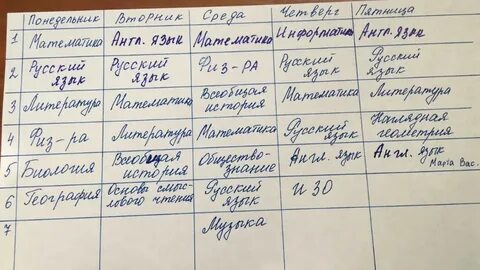 Понедельник Вторник Среда Четверг Пятница
1 Математика Англ. язык Математика Информатика Англ. язык
2 Русский язык Русский язык Физ-РА Русский язык Русский язык
3 Литература Математика Всеобщая история Математика Литература
4 Физ-ра Литература Математика Русский язык Наглядная геометрия
5 Биология Всеобщая история Общество-знание Англ. язык Англ. язык Мария Вас.
6 География Основы смыс-лового чтения Русский язык ИЗО
7 Музыка